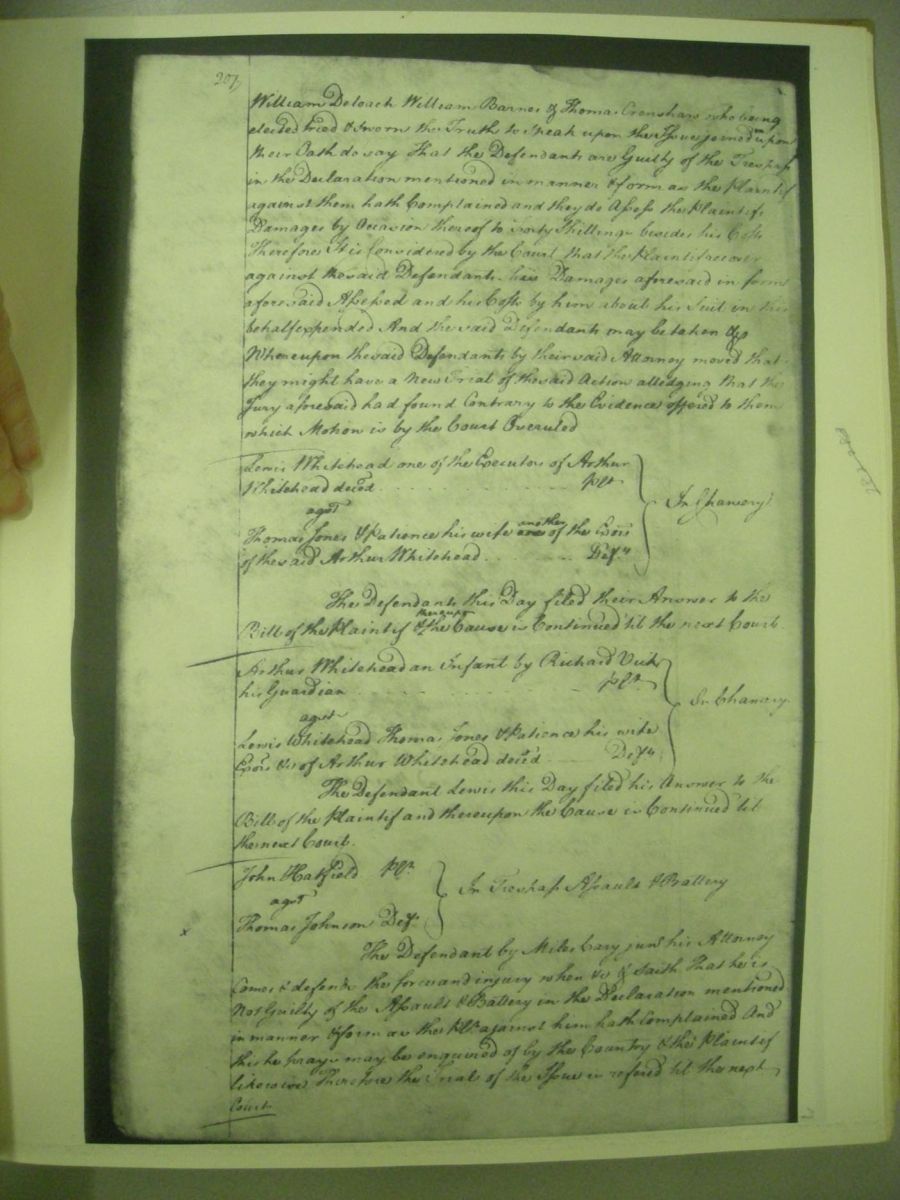 207
William Deloach William Barnes & Thomas Crenshaw who being
elected tried & sworn the Truth to speak upon the Issue joined upon
their Oath do say That the Defendants are Guilty of the Trespass
in the Declaration mentioned in manner & form as the Plaintif
against them hath Complained and they do Assess the Plaintifs
Damages by Occasion thereof to Forty Shillings besides his Costs
Therefore It is Considered by the Court that the Plaintif recover
against the said Defendants his Damages aforesaid in form
aforesaid Assessed and his Costs by him about his Suit in this
behalf expended And the said Defendants may be taken &c
Whereupon the said Defendants by their said Attorney moved that
they might have a New Trial of the said Action alledging that the
Jury aforesaid had found Contrary to the Evidence offered to them
which Motion is by the Court Overuled
Lewis Whitehead one of the Executors of Arthur
Whitehead deced Plt
agst In Chancery
Thomas Jones & Patience his wife another of the Exors
of the said Arthur Whitehead Defts
The Defendants this Day filed their Answer to the
Bill of the Plaintif & thereupon the Cause is Continued til the next Court
Arthur Whitehead an Infant by Richard Vick
his Guardian Plt
agst In Chancery
Lewis Whitehead Thomas Jones & Patience his wife
Exors &c of Arthur Whitehead deced Defts
The Defendant Lewis this Day filed his Answer to the
Bill of the Plaintif and thereupon the Cause is Continued til
the next Court
John Hatfield Plt
agst In Trespass Assault & Battery
Thomas Johnson Deft
The Defendant by Miles Cary junr his Attorney
Comes & defends the force and injury when &c & saith That he is
Not Guilty of the Assault & Battery in the Declaration mentioned
in manner & form as the Plt against him hath Complained And
this he prays may be enquired of by the Country & the Plaintif
likewise Therefore the Trial of the Issue is refered til the next
Court